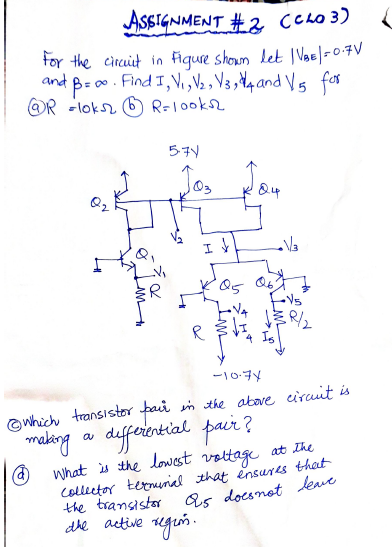 ASSIGNMENT # 2 (CLO 3)
For the circuit in Figure shown let |VBE|=0.7V
and β=∞. Find I, V1, V2, V3, V4 and V5 for
ⓐ R =10kΩ ⓑ R=100kΩ
5.7V
Q2
Q3
Q4
V2
Q1
I
V3
V1
R
Q5
Q6
V4
V5
R
I4
I5
R/2
-10.7V
ⓒ Which transistor pair in the above circuit is
making a differential pair?
ⓓ What is the lowest voltage at the
collector terminal that ensures that
the transistor Q5 doesnot leave
the active region.